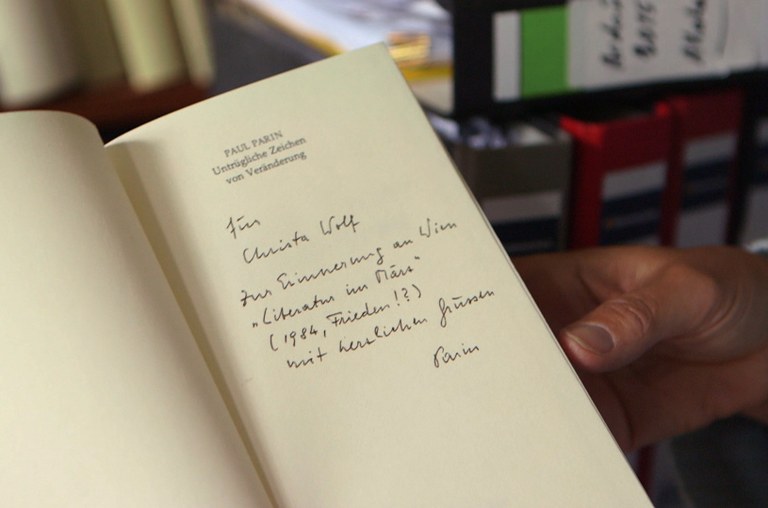 PAUL PARIN
Untrügliche Zeichen
von Veränderung
Für
Christa Wolf
zur Erinnerung an Wien
„Literatur im März“
(1984, Frieden!?)
mit herzlichen Grüssen
Parin